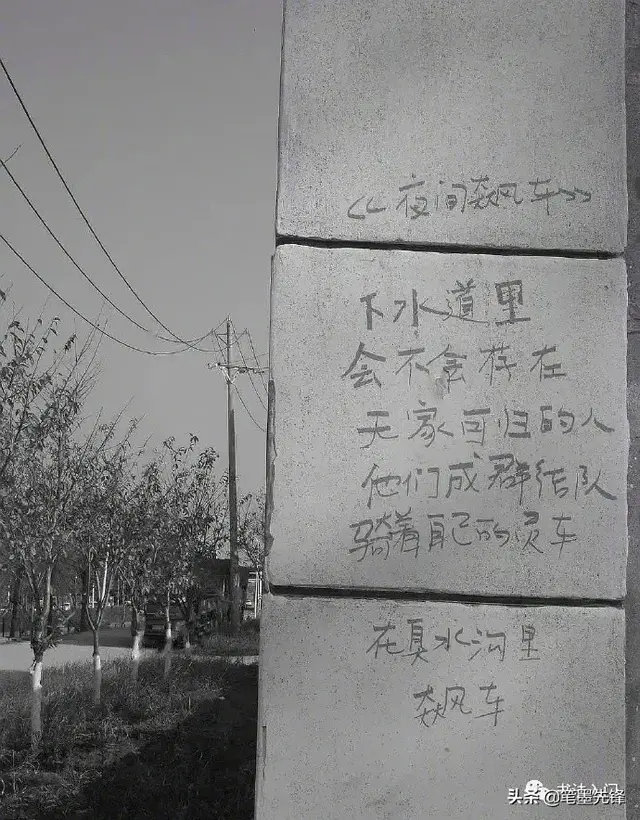 《夜间飙车》
下水道里
会不会存在
无家可归的人
他们成群结队
骑着自己的灵车
在臭水沟里
飙车
书法入门
头条 @笔墨先锋